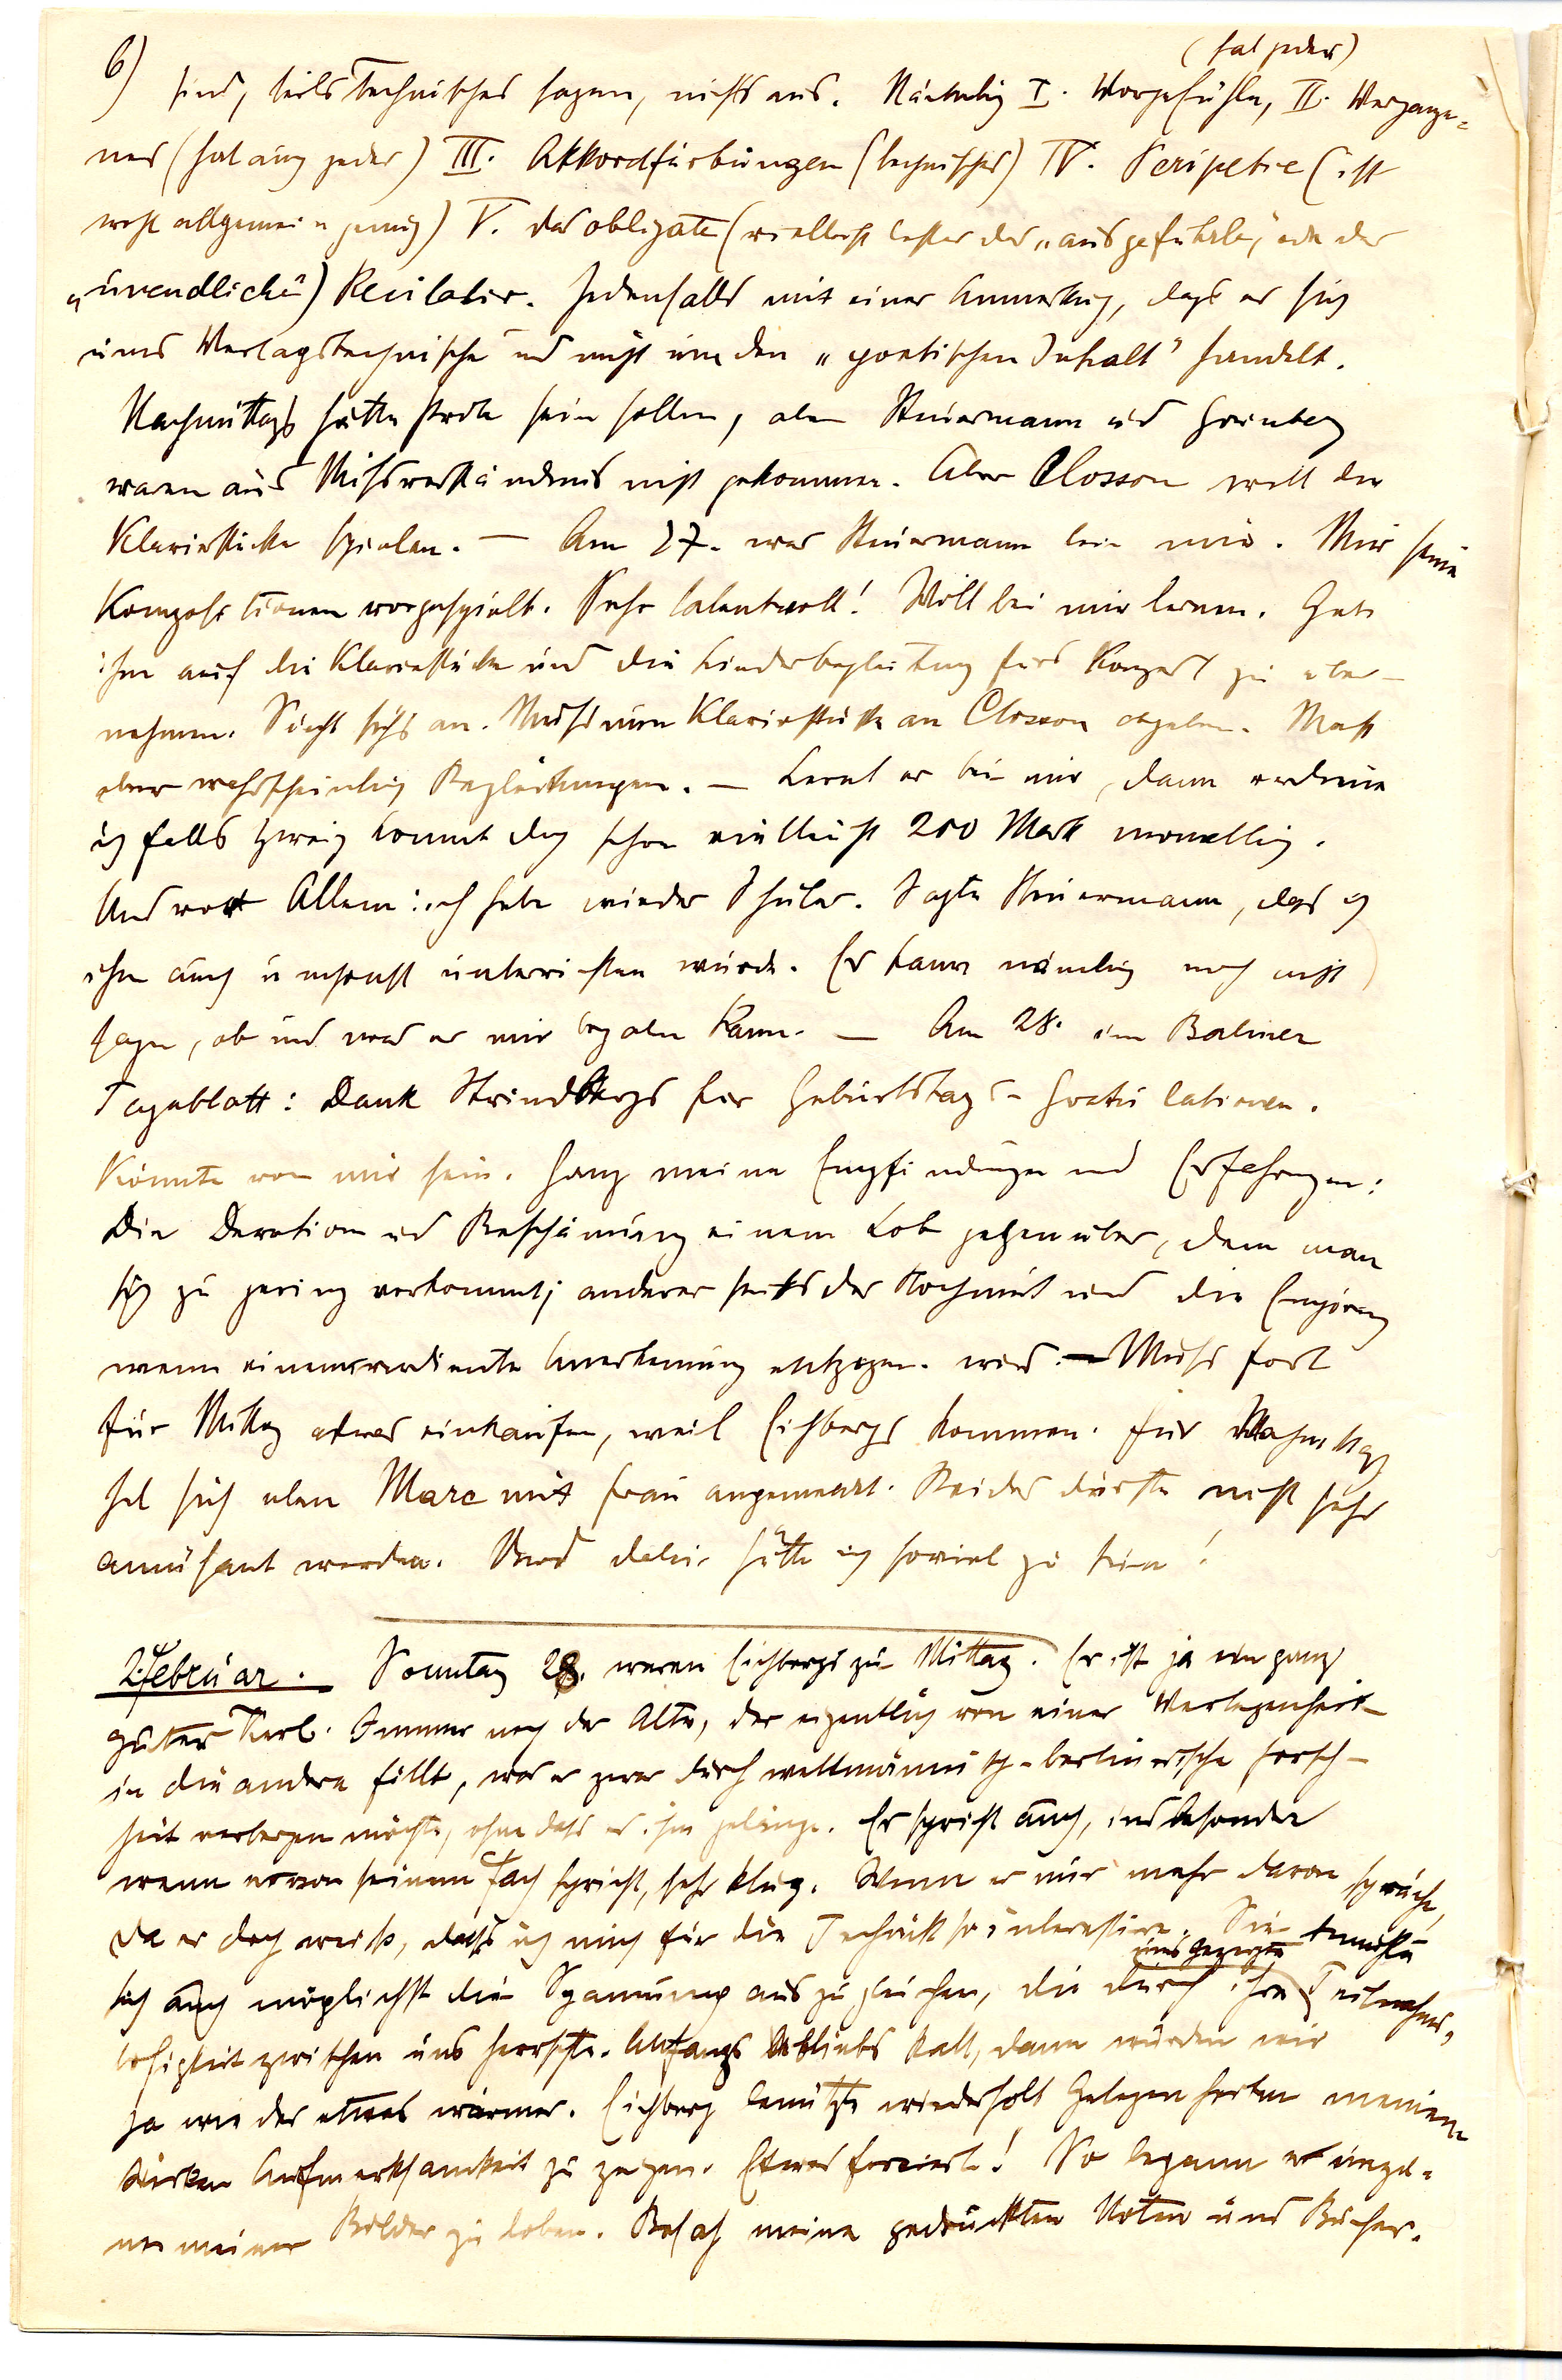 (hat jeder)
6) sind, teils Technisches sagen, nichts aus. Nämlich I. Vorgefühle, II. Vergange-
nes (hat auch jeder) III. Akkordfärbungen (technisches) IV. Peripetie (ist
wohl allgemein genug) V. das obligate (vielleicht besser das „ausgeführte", oder das
„unendliche") Recitativ. Jedenfalls mit einer Anmerkung, dass es sich
ums Verlagstechnische und nicht um den „poetischen Inhalt" handelt.
Nachmittags hätte Probe sein sollen, aber Steuermann und Grünberg
waren aus Missverständnis nicht gekommen. Aber Closson will die
Klavierstücke spielen. — Am 27. war Steuermann bei mir. Mir seine
Kompositionen vorgespielt. Sehr talentvoll! Will bei mir lernen. Gab
ihm auf die Klavierstücke und die Liederbegleitung fürs Konzert zu über-
nehmen. Sieht sichs an. Muss nun Klavierstücke an Closson abgeben. Macht
aber wahrscheinlich Begleitungen. — Lernt er bei mir, dann verdiene
ich falls Zweig kommt doch schon vielleicht 200 Mark monatlich.
Und vor Allem: ich habe wieder Schüler. Sagte Steuermann, dass ich
ihn auch umsonst unterrichten würde. Er kann nämlich noch nicht
sagen, ob und was er mir bezalen kann. — Am 28. im Berliner
Tageblatt: Dank Strindbergs für Geburtstags-Gratulationen.
Könnte von mir sein. Ganz meine Empfindungen und Erfahrungen:
Die Devotion und Beschämung einem Lob gegenüber, dem man
sich zu gering vorkommt; anderer seits der Hochmut und die Empörung
wenn einem verdiente Anerkennung entzogen wird. — Muss fort
für Mittag etwas einkaufen, weil Eichbergs kommen. Für Nachmittag
hat sich eben Marc mit Frau angemeldet. Beides dürfte nicht sehr
amüsant werden. Und dabei hätte ich soviel zu tun!
2. Februar. Sonntag 28. waren Eichbergs zu Mittag. Er ist ja ein ganz
guter Kerl. Immer noch der Alte, der eigentlich von einer Verlegenheit
in die andere fällt, was er zwar durch weltmännisch-berlinerische Forsch-
heit verbergen möchte, ohne dass es ihm gelänge. Er spricht auch, insbesondere
wenn er von seinem Fach spricht, sehr klug. Wenn er nur mehr davon spräche,
da er doch weiss, dass ich mich für die Technik so interessire. Sie bemühte
uns gezeigte
sich auch möglichst die Spannung auszugleichen, die durch ihre Teilnahms-
losigkeit zwischen uns herrschte. Anfangs bliebs kalt, dann wurden wir
ja wieder etwas wärmer. Eichberg benützte wiederholt Gelegenheiten meinen
Werken Aufmerksamkeit zu zeigen. Etwas forciert! So begann er einzel-
ne meiner Bilder zu loben. Besah meine gedruckten Noten und Bücher.